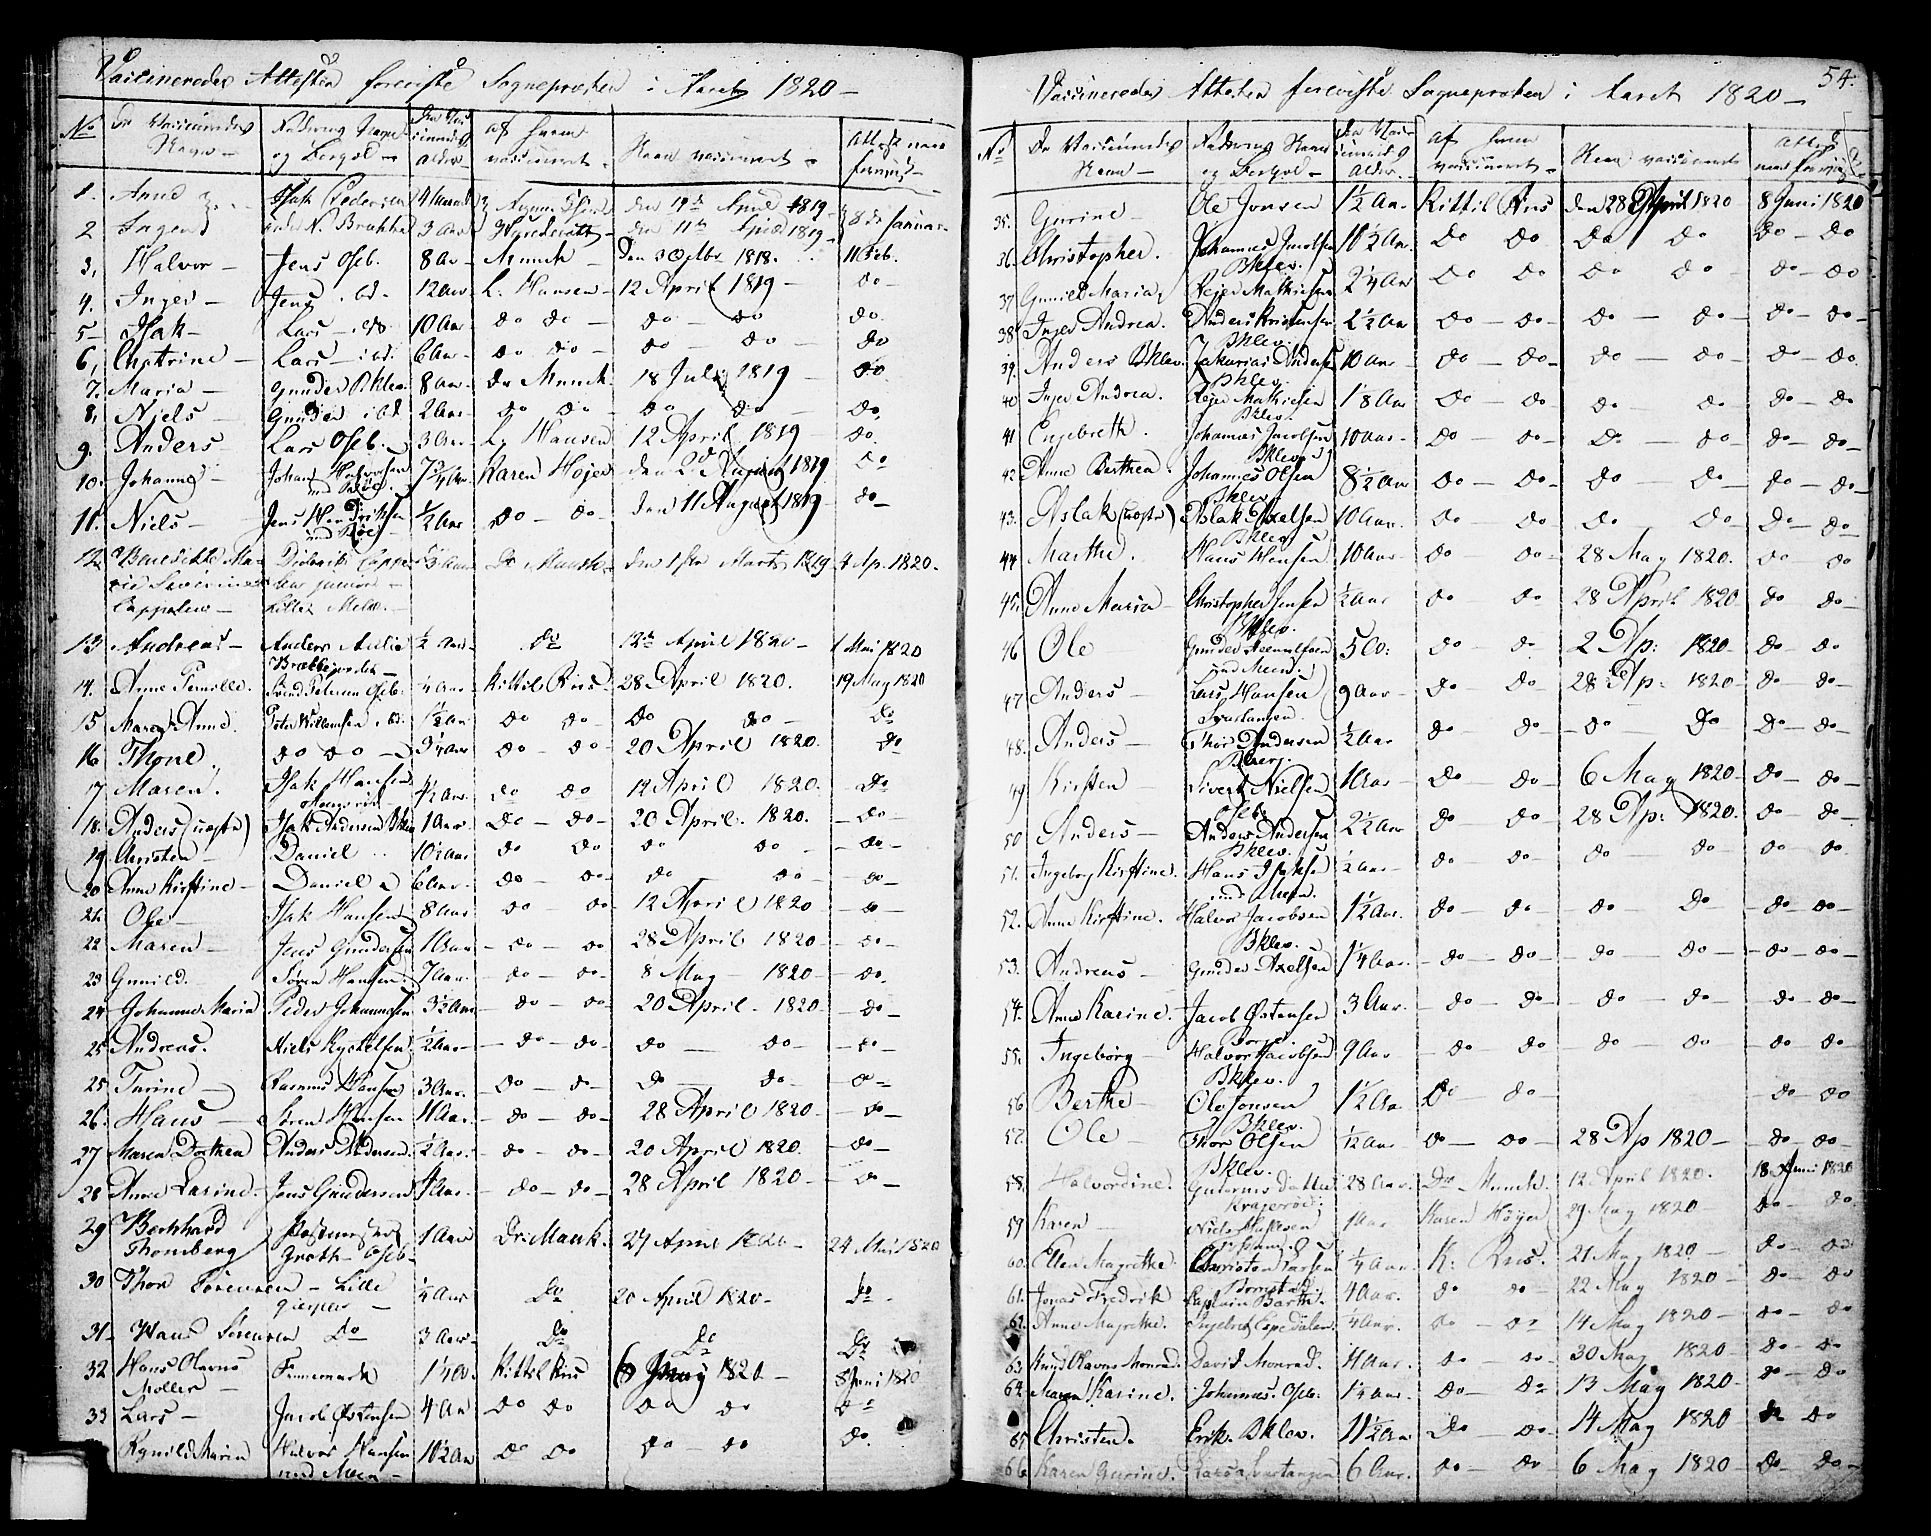 Vaccineredes Attester foreviste Sognepræsten i Aaret 1820 —
No
De Vaccineredes Navn —
Faderens Navn og Bopæl —
Den Vaccineredes Alder
af hvem vaccineret —
Naar vaccineret —
Attest naar forevist —
1. Anne Isak Pedersen 4 April 1819
2 Inger 3 Aar 11te April 1819 — 8de Januar
3, Halvor — Jens Oseb. 8 Aar — Munch — Den 3 1818. 11 Feb.
4. Inger — Jens ibd. 12 Aar L. Hansen — 12 April 1819 — do —
5 — Isak — Lars — ibd. 10 Aar do do — do — do do.
6, Cathrine — Lars — ibd. 6 Aar — do — do — do — do — do
7. Maria — Gunder Bklev 8 Aar — Dr Munch — 18 Juli 1819 — do
8, Niels — Gunder ibd 2 Aar — do do — do do — do.
9. Anders Lars Oseb. 3 Aar — L. Hansen 12 April 1819 — do.
10. Johanne — Johan Halvorsen 7 3/4 Aar Karen Højer den 2d August 1819 do
11. Niels — Jens Hendriksen 1/2 Aar do — do — den 11 August 1819 — do —
12 Benedikte Marie Severine Cappelen — Diderik Cappelen junior — Dr Munch — den 1ste Marts 1819 4 Ap. 1820.
13 Andreas — Anders 1/2 Aar — do 12te April 1820 — 1 Mai 1820
14. Anne Pernille. Svend Petersen Oseb. 1/4 Aar — Kittil Riis — 28 April 1820. 19 May 1820
15 Maren Anne. Peter Willumsen ibd. 1 1/2 Aar do do — do do — do
16 Thone. do do — 3 1/4 Aar do — do — 20 April 1820. do
17 Maren. Isak Hansen 4 1/2 Aar do do 12 April 1820. — do —
18. Anders (uægte) Isak Andersen Bklev 1 Aar do — do — 20 April. 1820. — do —
19. Christen — Daniel 10 1/2 Aar do do do do — — do —
20 Anne Kirstine — Daniel 6 Aar. — do — do — do — do — — do —
21. Ole — Isak Hansen 8 Aar — do — do 12 April 1820 — do —
22 Maren — Jens Gundersen 10 Aar — do — do 28 April 1820 — — do —
23 Gunild. Søren Hansen. 7 Aar. — do — do — 8 May — 1820 — do.
24 Johanne Maria Peder Johannesen 3 1/2 Aar — do — do — 20 April. 1820 — do —
25 Andreas. Niels Kystelsen 1/2 Aar — — do — do — do — do — — do —
25 Turine — Rasmus Hansen 3 Aar. — do — do — do — do — — do —
26. Hans — Søren Hansen 11 Aar. — do — do — 28 April 1820 — — do —
27 Maren Dorthea Anders Pedersen. 1/2 Aar. — do — do — 20 April 1820. — do —
28 Anne Larine. Jens Gundersen 4 Aar. — do — do — 28 April 1820 — — do —
29 Bernhard Thomberg Postmester Groth Oseb — 1 Aar Dr: Munk. 27 April 1820 — 24 Mai 1820
30 Thor Sørensen — Lille 1/4 Aar do 20 April 1820 — do —
31 — Hans Sørensen do 3 Aar — do do do
32 Hans Olavus Møller — Finmarka 1 1/4 Aar Kittil Riis 6 May 1820 — 8 Juni 1820
33 Lars — Jacob Østensen 4 Aar do do do do do
Rynild Maria Halvor Hansen ved Meen — 10 1/2 Aar do do do do do.
54.
Vaccineredes Attester foreviste Sognepræsten i Aaret 1820 —
No
De Vaccineredes Navn —
Faderens Navn og Bopæl —
Den Vaccineredes Alder.
af hvem vaccineret —
Naar vaccineret
Attest naar forevist
35. Gurine — Ole Jonsen 1 1/2 Aar. Kittil Riis den 28 April 1820 8 Juni 1820
36. Christopher. Johannes Jacobsen Bklev. 10 1/2 Aar. do do do do do — do
37 Gunild Maria, Rejer Mathiesen 2 1/4 Aar do do do do — do — do
38. Inger Andrea. Anders Kristensen Bklev 2 1/2 Aar do — do — do — do — do — do —
39. Anders Bklev. Zakarias Andersen Bklev. 10 Aar — do — do — do — do — do — do.
40 Inger Andrea. Rejer Mathiesen Bklev. 1/8 Aar do — do — do — do — do — do
41 Engebreth. Johannes Jacobsen Bklev. 10 Aar — do — do — do — do — do — do —
42 Anne Berthea. Johannes Olsen Bklev 8 1/2 Aar do — do — do — do — do — do —
43. Aslak (uægte) Aslak Axelsen Bklev. 10 Aar. do — do do — do do — do
44 Marthe. Hans Hansen 10 Aar — do — do — 28 May 1820. do do
45. Anne Maria — Christopher Jensen Bklev. 1/2 Aar do — do 28 April 1820. do do —
46 Ole Gunder ved Meen. 5 do — do 2 Ap: 1820 — do — do
47 Anders — Lars Hansen Svartangen. 9 Aar — do — do — 28 Ap. 1820 — do — do —
48. Anders — Thor Andersen Bberg. 1/2 Aar do — do — do do do — do —
49 Kirsten Sivert Nielsen Oseb. 1 Aar — do — do — 6 May 1820 — do — do
50 Anders — Anders Andersen Bklev. 2 1/2 Aar do — do — 28 Ap: 1820. do — do —
51. Ingeborg Kirstine. Hans Isaksen ved Meen. 1/2 Aar — do — do — do — do do do
52. Anne Kirstine. Halvor Jacobsen Bklev. 1 1/2 Aar. do — do do do — do — do —
53. Andreas — Gunder Axelsen 1/4 Aar. — do — do — do — do — do — do
54. Anne Karine. Jacob Østensen 3 Aar. — do — do — do — do — do — do —
55. Ingeborg — Halvor Jacobsen Bklev. 9 Aar — do — do do — do — do — do
56 Berthe — Ole Jonsen Bklev. 1 1/2 Aar do do — — do do
57. Ole Thor Olsen Bklev. 1/2 Aar do — do — 28 Ap 1820 — — do — do —
58. Halvordine. Gutorms Datter Kragerøe. 28 Aar. Dr. Munch. 12 April 1820. 18 Juni 1820
59 Karen — Niels 1 Aar Karen Højer 29 May 1820 — do — do
60. Ellen Magrethe. Christen Larsen 1/4 Aar. K. Riis. 21 May 1820 — do — do
61. Jonas Fredrik Captain Barth. 4 Aar. do do — 22 May 1820 — do — do
62. Anne Magrethe. 1/4 Aar. do — do 14 May 1820 — do — do
63. Knud Olavus Monrad. David Monrad. 4 Aar. do — do — 30 May 1820 — do — do
64. Maren Karine. Johannes. Oseb. 1 1/4 Aar. do — do 13 May 1820 — do — do
65 Christen. Erik. Bklev. 11 1/2 Aar do — do — 14 May 1820 do do
66 Karen Gurine. Lars Svartangen 6 Aar. do — do — 6 May 1820 — do — do —